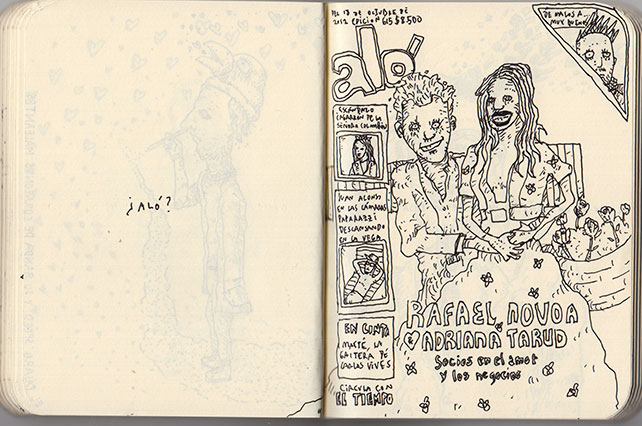 ¿ALÓ?
DEL 18 DE OCTUBRE DE
2012 EDICIÓN 615 $8500
aló
DE MALOS A
MUY BUENOS
ESCÁNDALO
CAGARRÓN DE LA
SEÑORA COLOMBIA
JUAN ALONSO
EN LAS CÁMARAS
PAPARAZZI
DESCANSANDO
EN LA VEGA
EN CINTA
MAYTÉ, LA
GAITERA DE
CARLOS VIVES
CIRCULA CON
EL TIEMPO
RAFAEL NOVOA
ADRIANA TARUD
Socios en el amor
y los negocios